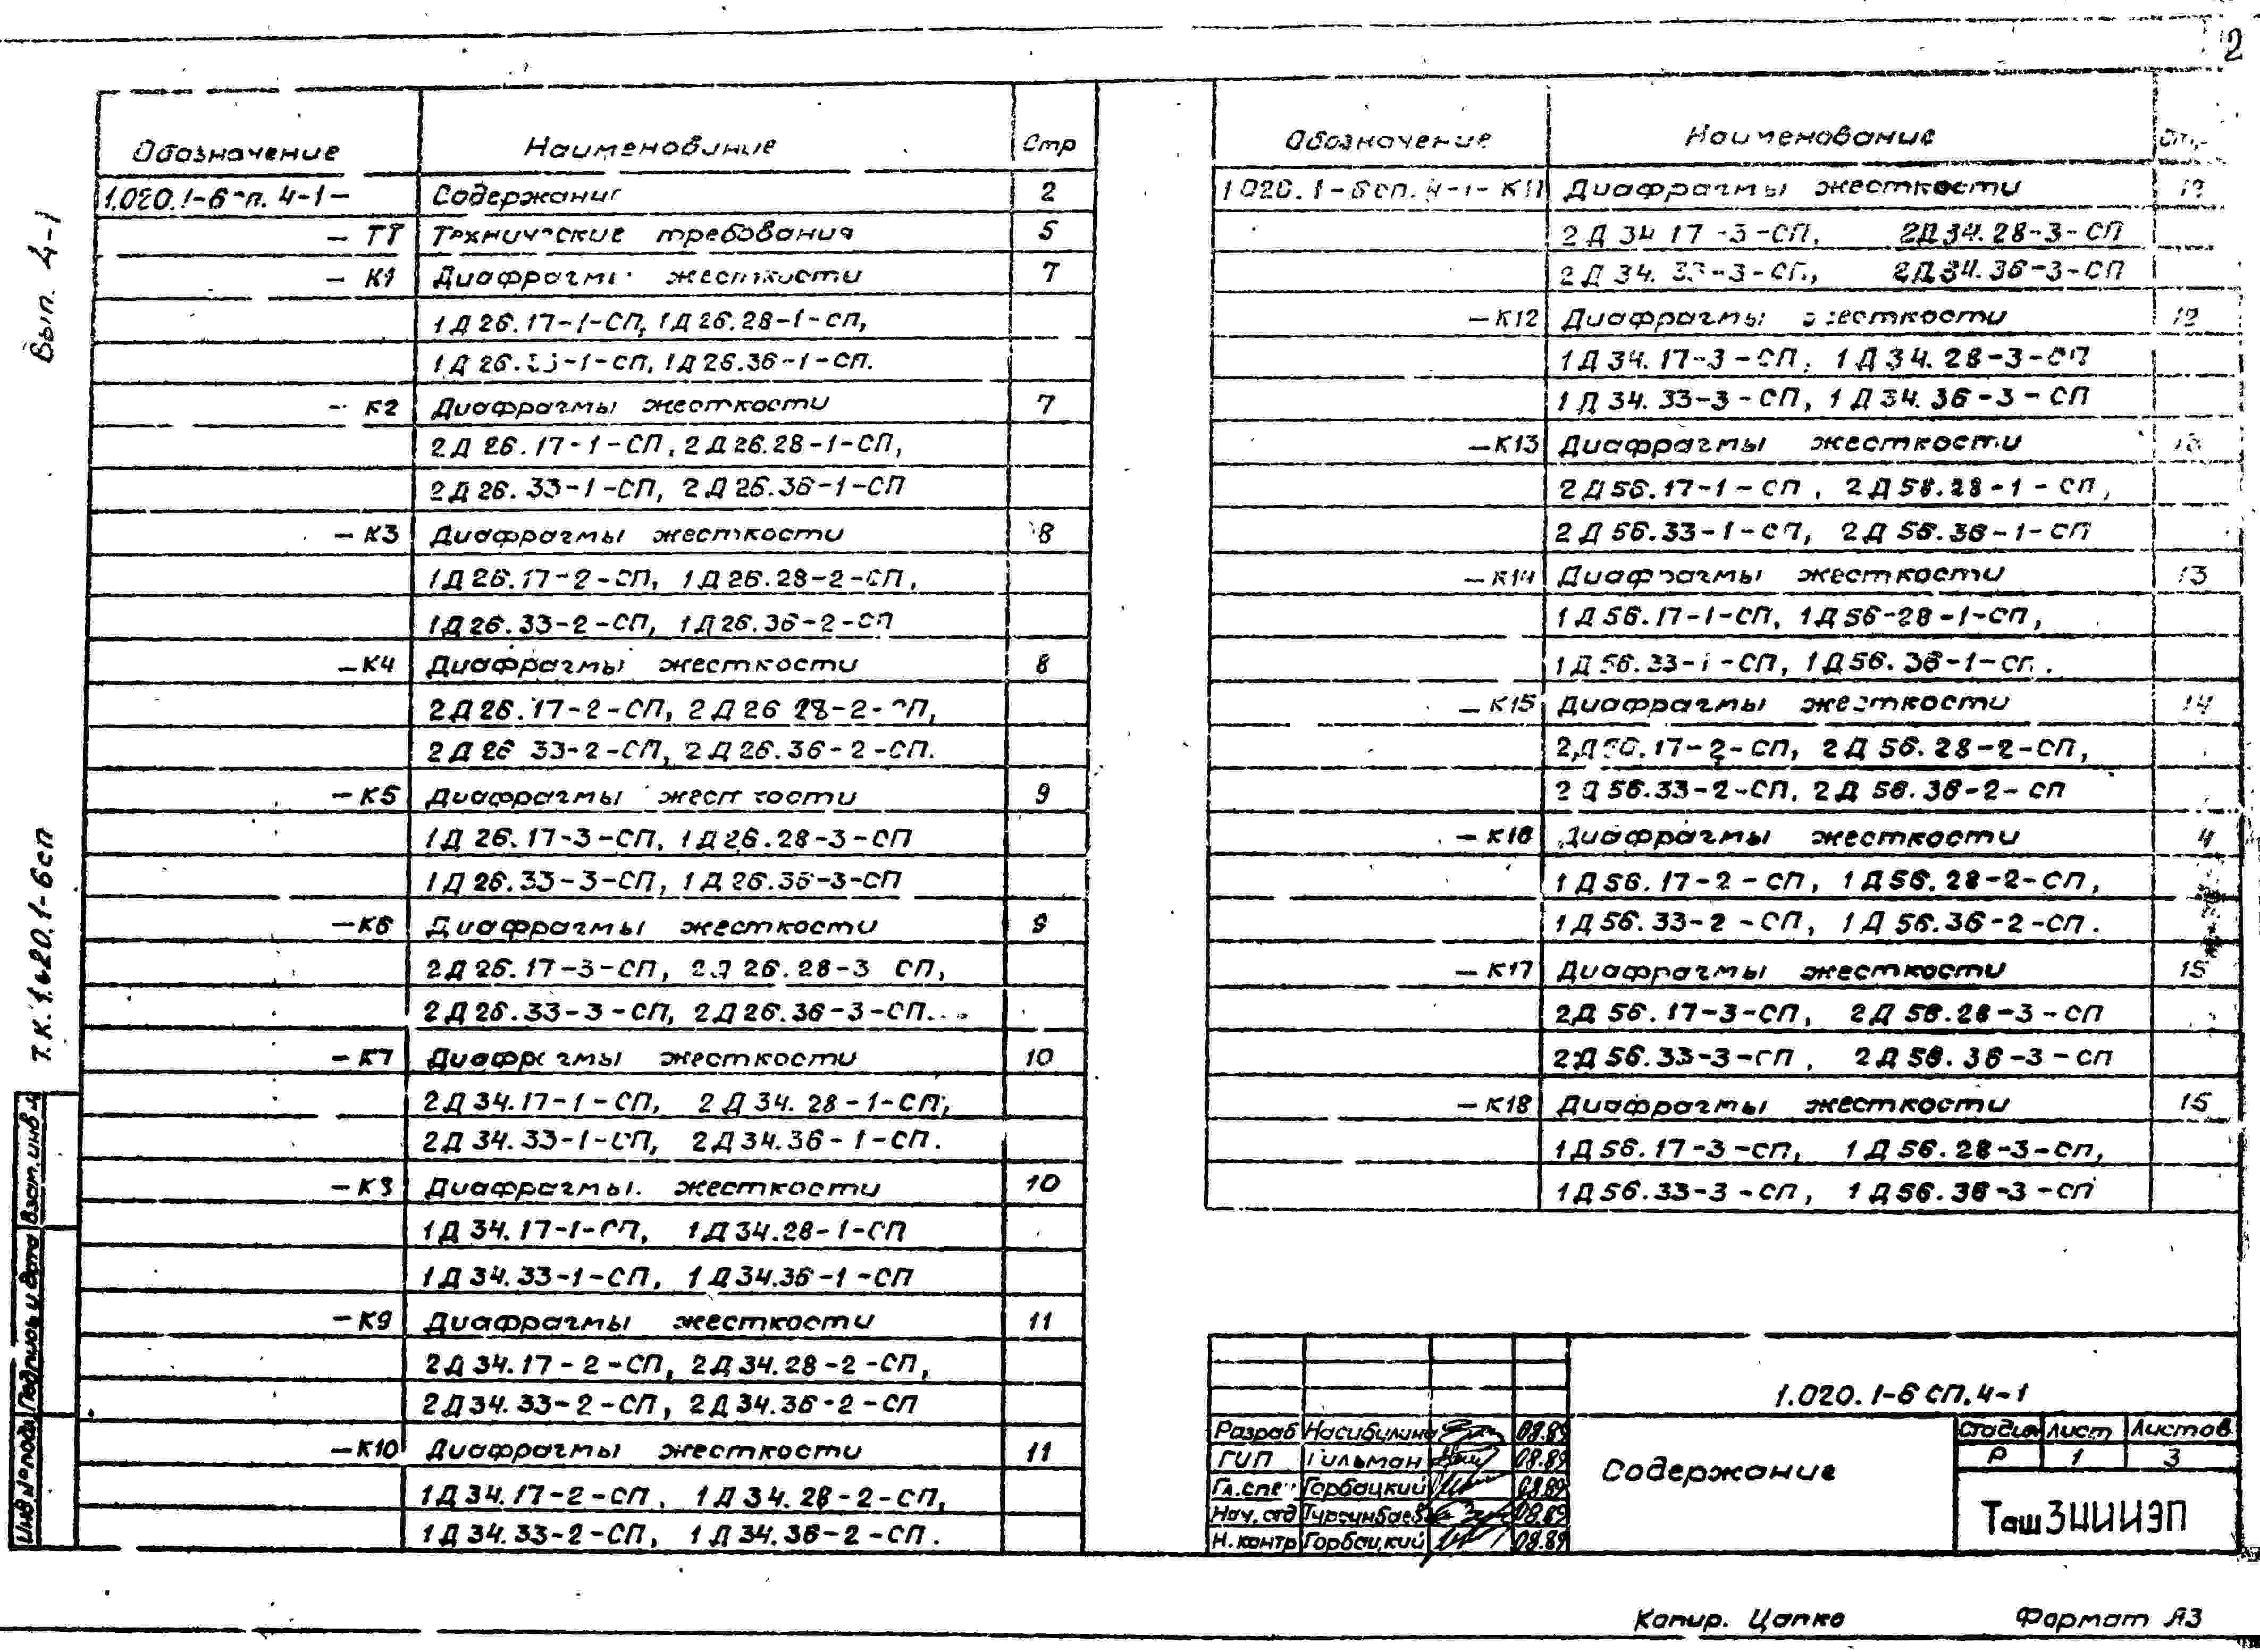 2
Вып. 4-1
Т.К. 1.020.1-6сп
Обозначение Наименование Стр
1.020.1-6сп. 4-1- Содержание 2
- ТТ Технические требования 5
- К1 Диафрагмы жесткости 7
1Д26.17-1-СП, 1Д26.28-1-СП,
1Д26.33-1-СП, 1Д26.36-1-СП.
- К2 Диафрагмы жесткости 7
2Д26.17-1-СП, 2Д26.28-1-СП,
2Д26.33-1-СП, 2Д26.36-1-СП
- К3 Диафрагмы жесткости 8
1Д26.17-2-СП, 1Д26.28-2-СП,
1Д26.33-2-СП, 1Д26.36-2-СП
- К4 Диафрагмы жесткости 8
2Д26.17-2-СП, 2Д26 28-2-СП,
2Д26 33-2-СП, 2Д26.36-2-СП.
- К5 Диафрагмы жесткости 9
1Д26.17-3-СП, 1Д26.28-3-СП
1Д26.33-3-СП, 1Д26.36-3-СП
- К6 Диафрагмы жесткости 9
2Д26.17-3-СП, 2Д26.28-3 СП,
2Д26.33-3-СП, 2Д26.36-3-СП.
- К7 Диафрагмы жесткости 10
2Д34.17-1-СП, 2Д34.28-1-СП,
2Д34.33-1-СП, 2Д34.36-1-СП.
- К8 Диафрагмы жесткости 10
1Д34.17-1-СП, 1Д34.28-1-СП
1Д34.33-1-СП, 1Д34.36-1-СП
- К9 Диафрагмы жесткости 11
2Д34.17-2-СП, 2Д34.28-2-СП,
2Д34.33-2-СП, 2Д34.36-2-СП
- К10 Диафрагмы жесткости 11
1Д34.17-2-СП, 1Д34.28-2-СП,
1Д34.33-2-СП, 1Д34.36-2-СП.
Обозначение Наименование Стр.
1.020.1-6сп. 4-1- К11 Диафрагмы жесткости
2Д34 17-3-СП, 2Д34.28-3-СП
2Д34.33-3-СП, 2Д34.36-3-СП
- К12 Диафрагмы жесткости 12
1Д34.17-3-СП, 1Д34.28-3-СП
1Д34.33-3-СП, 1Д34.36-3-СП
- К13 Диафрагмы жесткости 13
2Д56.17-1-СП, 2Д56.28-1-СП,
2Д56.33-1-СП, 2Д56.36-1-СП
- К14 Диафрагмы жесткости 13
1Д56.17-1-СП, 1Д56-28-1-СП,
1Д56.33-1-СП, 1Д56.36-1-СП.
- К15 Диафрагмы жесткости 14
2Д56.17-2-СП, 2Д56.28-2-СП,
2Д56.33-2-СП, 2Д56.36-2-СП
- К16 Диафрагмы жесткости 4
1Д56.17-2-СП, 1Д56.28-2-СП,
1Д56.33-2-СП, 1Д56.36-2-СП.
- К17 Диафрагмы жесткости 15
2Д56.17-3-СП, 2Д56.28-3-СП
2Д56.33-3-СП, 2Д56.36-3-СП
- К18 Диафрагмы жесткости 15
1Д56.17-3-СП, 1Д56.28-3-СП,
1Д56.33-3-СП, 1Д56.36-3-СП
Взам. инв №
Подпись и дата
Инв № подл
1.020.1-6 СП.4-1
Разраб Насибулина 08.89
ГИП Гильман 08.89
Гл. спец Горбацкий 08.89
Нач. отд Турсунбаев 08.89
Н. контр Горбацкий 08.89
Содержание
Стадия Лист Листов
Р 1 3
ТашЗНИИЭП
Копир. Цапко Формат А3